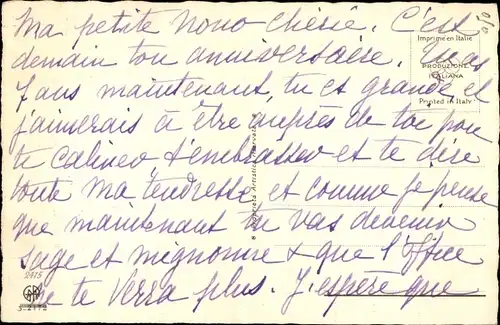 Ma petite Nono chérie. C'est
demain ton anniversaire. Tu as
7 ans maintenant, tu es grande et
j'aimerais à être auprès de toi pour
te caliner, t'embrasser et te dire
toute ma tendresse, et comme je pense
que maintenant tu vas devenir
sage et mignonne & que l'office
ne te verra plus. J'espère que
Imprimé en Italie
PRODUZIONE
ITALIANA
Printed in Italy
2415